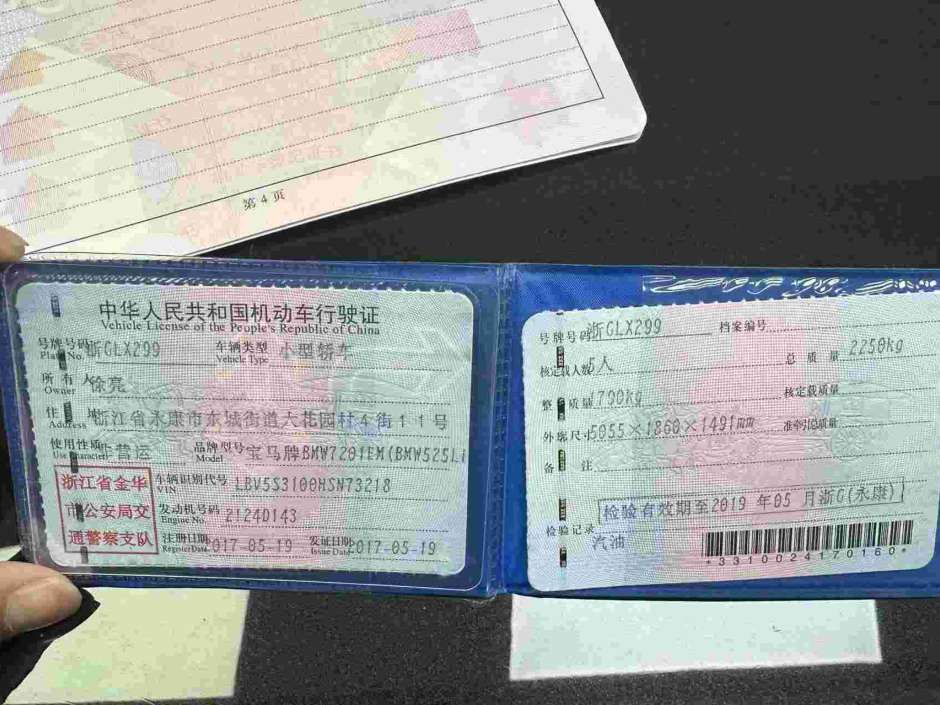 第 4 页
中华人民共和国机动车行驶证
Vehicle License of the People's Republic of China
号牌号码 浙GLX299 车辆类型 小型轿车
Plate No. Vehicle Type
所有人 徐亮
Owner
住址 浙江省永康市东城街道大花园村4街11号
Address
使用性质 营运 品牌型号 宝马牌BMW7201EM(BMW525Li
Use Character Model
浙江省金华
市公安局交
通警察支队
车辆识别代号 LBV5S3100HSN73218
VIN
发动机号码 21240143
Engine No.
注册日期 2017-05-19 发证日期 2017-05-19
Register Date Issue Date
号牌号码 浙GLX299 档案编号
核定载人数 5人 总质量 2250kg
整 质量 kg 核定载质量
外廓尺寸 5055×1860×1491mm 准牵引总质量
备 注
检验有效期至2019 年05 月浙G(永康)
检验记录
汽油
*3310024170160*